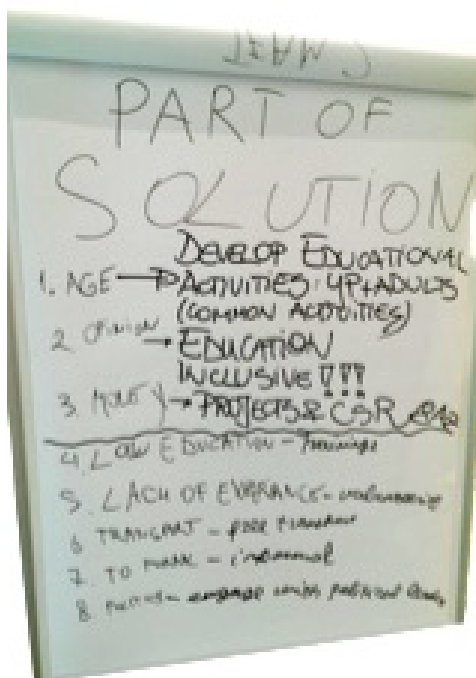 PART OF
SOLUTION
DEVELOP EDUCATIONAL
1. AGE → ACTIVITIES: YP+ADULTS
(COMMON ACTIVITIES)
2 OPINION → EDUCATION
INCLUSIVE !!!
3 MONEY → PROJECTS & CSR
4. LOW EDUCATION - Trainings
5. LACK OF - volunteering
6 TRANSPORT -
7. TO - informal
8 - engage with political